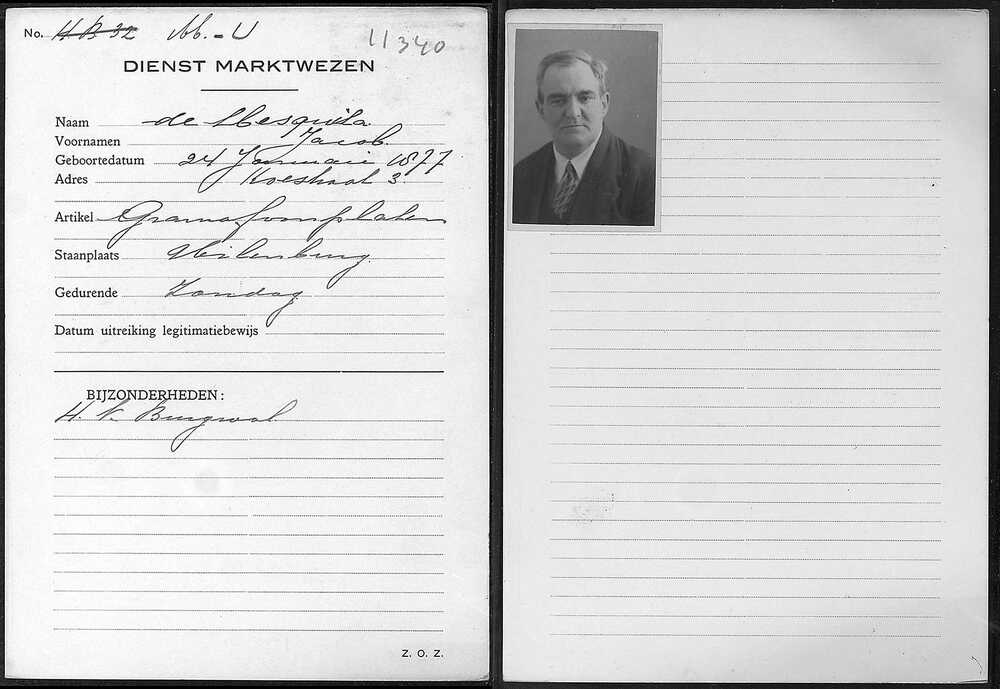 No. H B 32 Ub. - U
11340
DIENST MARKTWEZEN
Naam de Mesquita
Voornamen Jacob
Geboortedatum 24 Januari 1877
Adres 3
Artikel Gramofoonplaten
Staanplaats Uilenburg
Gedurende Zondag
Datum uitreiking legitimatiebewijs
BIJZONDERHEDEN:
Burgwal
Z. O. Z.